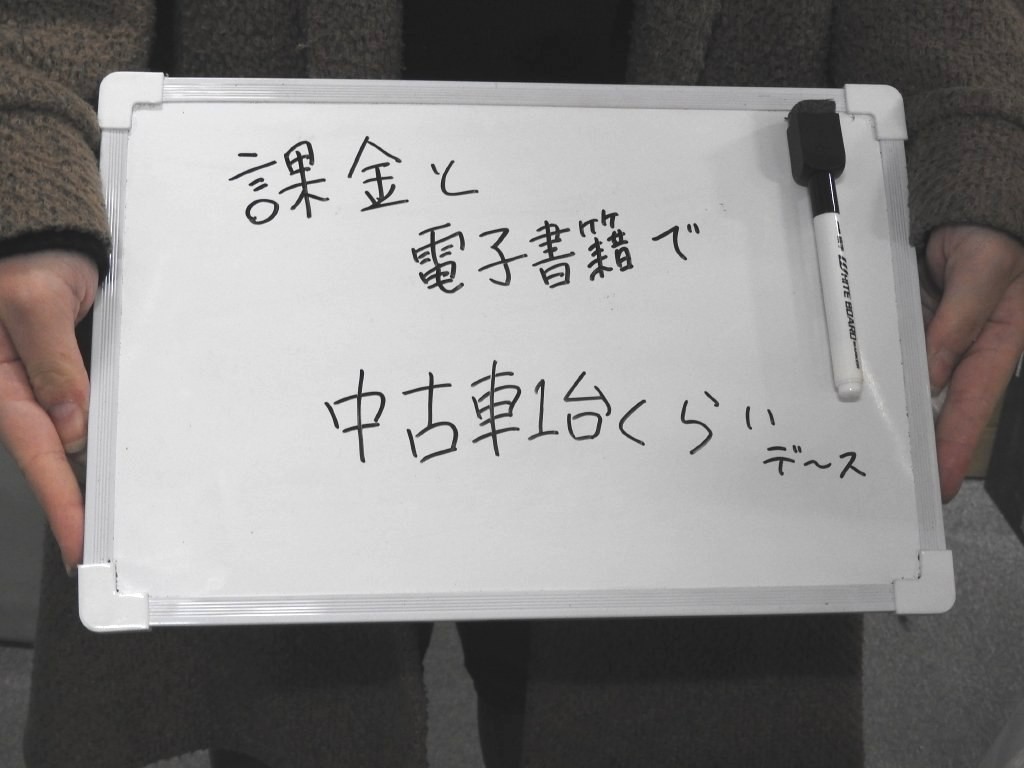 課金と
電子書籍で
中古車1台くらい
デ～ス
WHITE BOARD